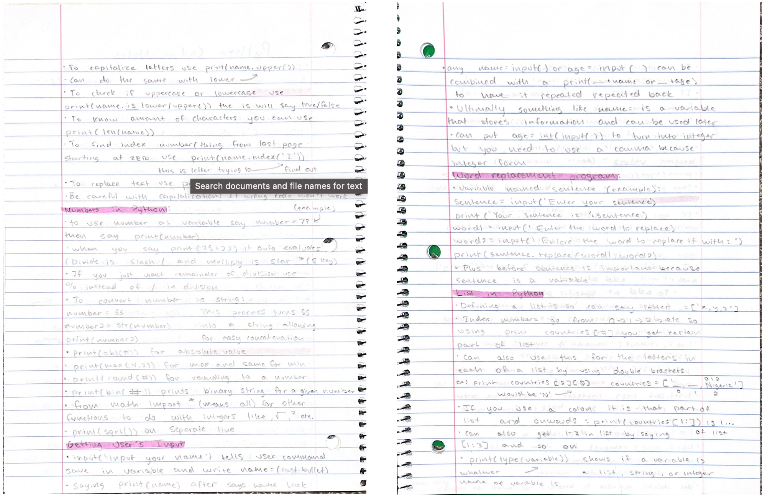 · To capitalize letters use print(name.upper())
· Can do the same with lower
· To check if uppercase or lowercase use
print(name.islower/upper()) the is will say true/false
· To know amount of characters you can use
print(len(name))
· To find index number/thing from last page
starting at zero use print(name.index('z'))
this is letter trying to find out
· To replace text use
Search documents and file names for text
· Be careful with capitalization
Numbers in Python (example)
· to use number as variable say number = 79
then say print(number)
· when you say print(75+23) it auto evaluates
(Divide is slash / and multiply is star * (8 key)
· If you just want remainder of division use
% instead of / in division
· To convert number to string:
number = 86 This process turns 86
number2 = str(number) into a string allowing
print(number2) for easy concatenation
· print(abs()) for absolute value
· print(max(4,2)) for max and same for min
· print(round(#)) for rounding to a number
· print(bin(#)) prints binary string for a given number
· from math import * (means all) for other
functions to do with integers like √ ? etc.
· print(sqrt()) on separate line
Getting User's Input
· input('input your name') tells user command
save in variable and write name = (last bullet)
· saying print(name) after says name last
· any name = input() or age = input() can be
combined with a print(__+name or __+age)
to have it repeated back
· Ultimately something like name = is a variable
that stores information and can be used later
· can put age = int(input()) to turn into integer
but you need to use a comma because
integer form
Word replacement program
· Variable named sentence (example):
Sentence = input('Enter your sentence')
print('Your sentence is' + sentence)
word1 = input('Enter the word to replace')
word2 = input('Enter the word to replace it with:')
print(sentence.replace(word1, word2))
· Plus before sentence is important because
sentence is a variable
List in Python
· Define a list so can say letter = ['x,y,z']
· Index numbers go from 0→1→2 etc so
using print countries[#] you get certain
part of list
· can also use this for the letters in
each of a list by using double brackets
ex: print countries[2][0] countries = [
would be 'N' 0 1 2
· If you use a colon it is that part of
list and onwards: print(countries[1:]) is 1...
· can also get 1-3 in list by saying of list
[1:3] and so on
· print(type(variable)) shows if a variable is
whatever a list, string, or integer
name of variable is